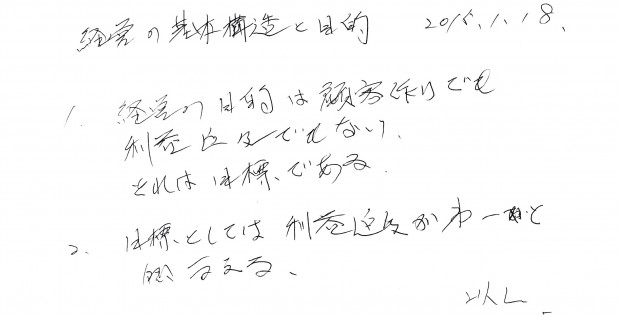 経営の基本構造と目的 2015.1.18.
1. 経営の目的は顧客作りでも
利益追及でもない、
それは目標、である
2. 目標、としては利益追及が第一と
考える、
以上